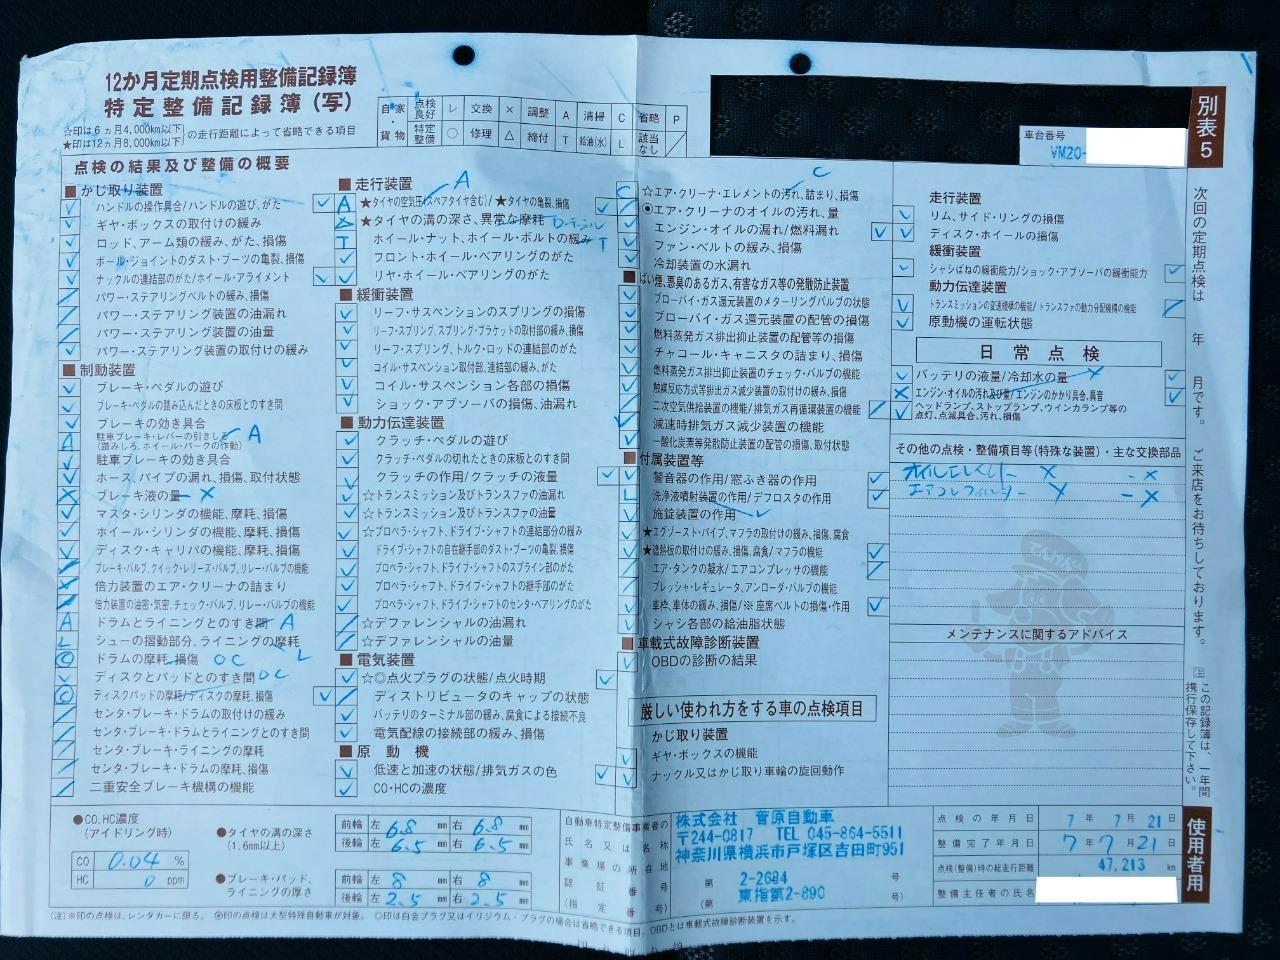 12か月定期点検用整備記録簿
特定整備記録簿(写)
☆印は6ヵ月4,000km以下
★印は12ヵ月8,000km以下
の走行距離によって省略できる項目
自家・貨物
点検良好 レ 交換 × 調整 A 清掃 C 省略 P
特定整備 ○ 修理 △ 締付 T 給油(水) L 該当なし ／
別表5
車台番号
VM20-
点検の結果及び整備の概要
■かじ取り装置
ハンドルの操作具合/ハンドルの遊び、がた
ギヤ・ボックスの取付けの緩み
ロッド、アーム類の緩み、がた、損傷
ボール・ジョイントのダスト・ブーツの亀裂、損傷
ナックルの連結部のがた/ホイール・アライメント
パワー・ステアリングベルトの緩み、損傷
パワー・ステアリング装置の油漏れ
パワー・ステアリング装置の油量
パワー・ステアリング装置の取付けの緩み
■制動装置
ブレーキ・ペダルの遊び
ブレーキ・ペダルの踏み込んだときの床板とのすき間
ブレーキの効き具合
駐車ブレーキ・レバーの引きしろ A
(踏みしろ、ホイール・パークの作動)
駐車ブレーキの効き具合
ホース、パイプの漏れ、損傷、取付状態
ブレーキ液の量 X
マスタ・シリンダの機能、摩耗、損傷
ホイール・シリンダの機能、摩耗、損傷
ディスク・キャリパの機能、摩耗、損傷
ブレーキ・バルブ、クイック・レリーズ・バルブ、リレー・バルブの機能
倍力装置のエア・クリーナの詰まり
倍力装置の油密・気密、チェック・バルブ、リレー・バルブの機能
ドラムとライニングとのすき間 A
シューの摺動部分、ライニングの摩耗 L
ドラムの摩耗、損傷 OC
ディスクとパッドとのすき間 OC
ディスクパッドの摩耗/ディスクの摩耗、損傷
センタ・ブレーキ・ドラムの取付けの緩み
センタ・ブレーキ・ドラムとライニングとのすき間
センタ・ブレーキ・ライニングの摩耗
センタ・ブレーキ・ドラムの摩耗、損傷
二重安全ブレーキ機構の機能
■走行装置 A
★タイヤの空気圧(スペアタイヤ含む)/★タイヤの亀裂、損傷
★タイヤの溝の深さ、異常な摩耗
ホイール・ナット、ホイール・ボルトの緩み T
フロント・ホイール・ベアリングのがた
リヤ・ホイール・ベアリングのがた
■緩衝装置
リーフ・サスペンションのスプリングの損傷
リーフ・スプリング、スプリング・ブラケットの取付部の緩み、損傷
リーフ・スプリング、トルク・ロッドの連結部のがた
コイル・サスペンション取付部、連結部の緩み、がた
コイル・サスペンション各部の損傷
ショック・アブソーバの損傷、油漏れ
■動力伝達装置
クラッチ・ペダルの遊び
クラッチ・ペダルの切れたときの床板とのすき間
クラッチの作用/クラッチの液量
☆トランスミッション及びトランスファの油漏れ
☆トランスミッション及びトランスファの油量
☆プロペラ・シャフト、ドライブ・シャフトの連結部分の緩み
ドライブ・シャフトの自在継手部のダスト・ブーツの亀裂、損傷
プロペラ・シャフト、ドライブ・シャフトのスプライン部のがた
プロペラ・シャフト、ドライブ・シャフトの継手部のがた
プロペラ・シャフト、ドライブ・シャフトのセンタ・ベアリングのがた
☆デファレンシャルの油漏れ
☆デファレンシャルの油量
■電気装置
☆◎点火プラグの状態/点火時期
ディストリビュータのキャップの状態
バッテリのターミナル部の緩み、腐食による接続不良
電気配線の接続部の緩み、損傷
■原動機
低速と加速の状態/排気ガスの色
CO・HCの濃度
C
☆エア・クリーナ・エレメントの汚れ、詰まり、損傷
エア・クリーナのオイルの汚れ、量
エンジン・オイルの漏れ/燃料漏れ
ファン・ベルトの緩み、損傷
冷却装置の水漏れ
■ばい煙、悪臭のあるガス、有害なガス等の発散防止装置
ブローバイ・ガス還元装置のメターリングバルブの状態
ブローバイ・ガス還元装置の配管の損傷
燃料蒸発ガス排出抑止装置の配管等の損傷
チャコール・キャニスタの詰まり、損傷
燃料蒸発ガス排出抑止装置のチェック・バルブの機能
触媒反応方式等排出ガス減少装置の取付けの緩み、損傷
二次空気供給装置の機能/排気ガス再循環装置の機能
減速時排気ガス減少装置の機能
一酸化炭素等発散防止装置の配管の損傷、取付状態
■付属装置等
警音器の作用/窓ふき器の作用
洗浄液噴射装置の作用/デフロスタの作用
施錠装置の作用 L
★エグゾースト・パイプ、マフラの取付けの緩み、損傷、腐食
★遮熱板の取付けの緩み、損傷、腐食/マフラの機能
エア・タンクの凝水/エアコンプレッサの機能
プレッシャ・レギュレータ、アンローダ・バルブの機能
車枠、車体の緩み、損傷/※座席ベルトの損傷・作用
シャシ各部の給油脂状態
■車載式故障診断装置
OBDの診断の結果
厳しい使われ方をする車の点検項目
かじ取り装置
ギヤ・ボックスの機能
ナックル又はかじ取り車輪の旋回動作
走行装置
リム、サイド・リングの損傷
ディスク・ホイールの損傷
緩衝装置
シャシばねの緩衝能力/ショック・アブソーバの緩衝能力
動力伝達装置
トランスミッションの変速機構の機能/トランスファの動力分配機構の機能
原動機の運転状態
日常点検
バッテリの液量/冷却水の量 X
エンジン・オイルの汚れ及び量/エンジンのかかり具合、異音
ヘッドランプ、ストップランプ、ウインカランプ等の
点灯、点滅具合、汚れ、損傷
その他の点検・整備項目等(特殊な装置)・主な交換部品
オイルエレメント X - X
エアコンフィルター X - X
てんけんくん
メンテナンスに関するアドバイス
次回の定期点検は 年 月です。 ご来店をお待ちしております。
注 この記録簿は、一年間携行保存して下さい。
使用者用
●CO、HC濃度
(アイドリング時)
CO 0.04 %
HC 0 ppm
●タイヤの溝の深さ
(1.6mm以上)
前輪 左 6.8 mm 右 6.8 mm
後輪 左 6.5 mm 右 6.5 mm
●ブレーキ・パッド、
ライニングの厚さ
前輪 左 8 mm 右 8 mm
後輪 左 2.5 mm 右 2.5 mm
自動車特定整備事業者の
氏名又は名称
事業場の所在地
認証番号
(指定番号)
株式会社 菅原自動車
〒244-0817 TEL 045-864-5511
神奈川県横浜市戸塚区吉田町951
第 2-2684 号
(第 東指第2-890 号)
点検の年月日 7年 7月 21日
整備完了年月日 7年 7月 21日
点検(整備)時の総走行距離 47,213 km
整備主任者の氏名
(注)※印の点検は、レンタカーに限る。 印の点検は大型特殊自動車が対象。 ◎印は白金プラグ又はイリジウム・プラグの場合は省略できる項目。OBDとは車載式故障診断装置を示す。